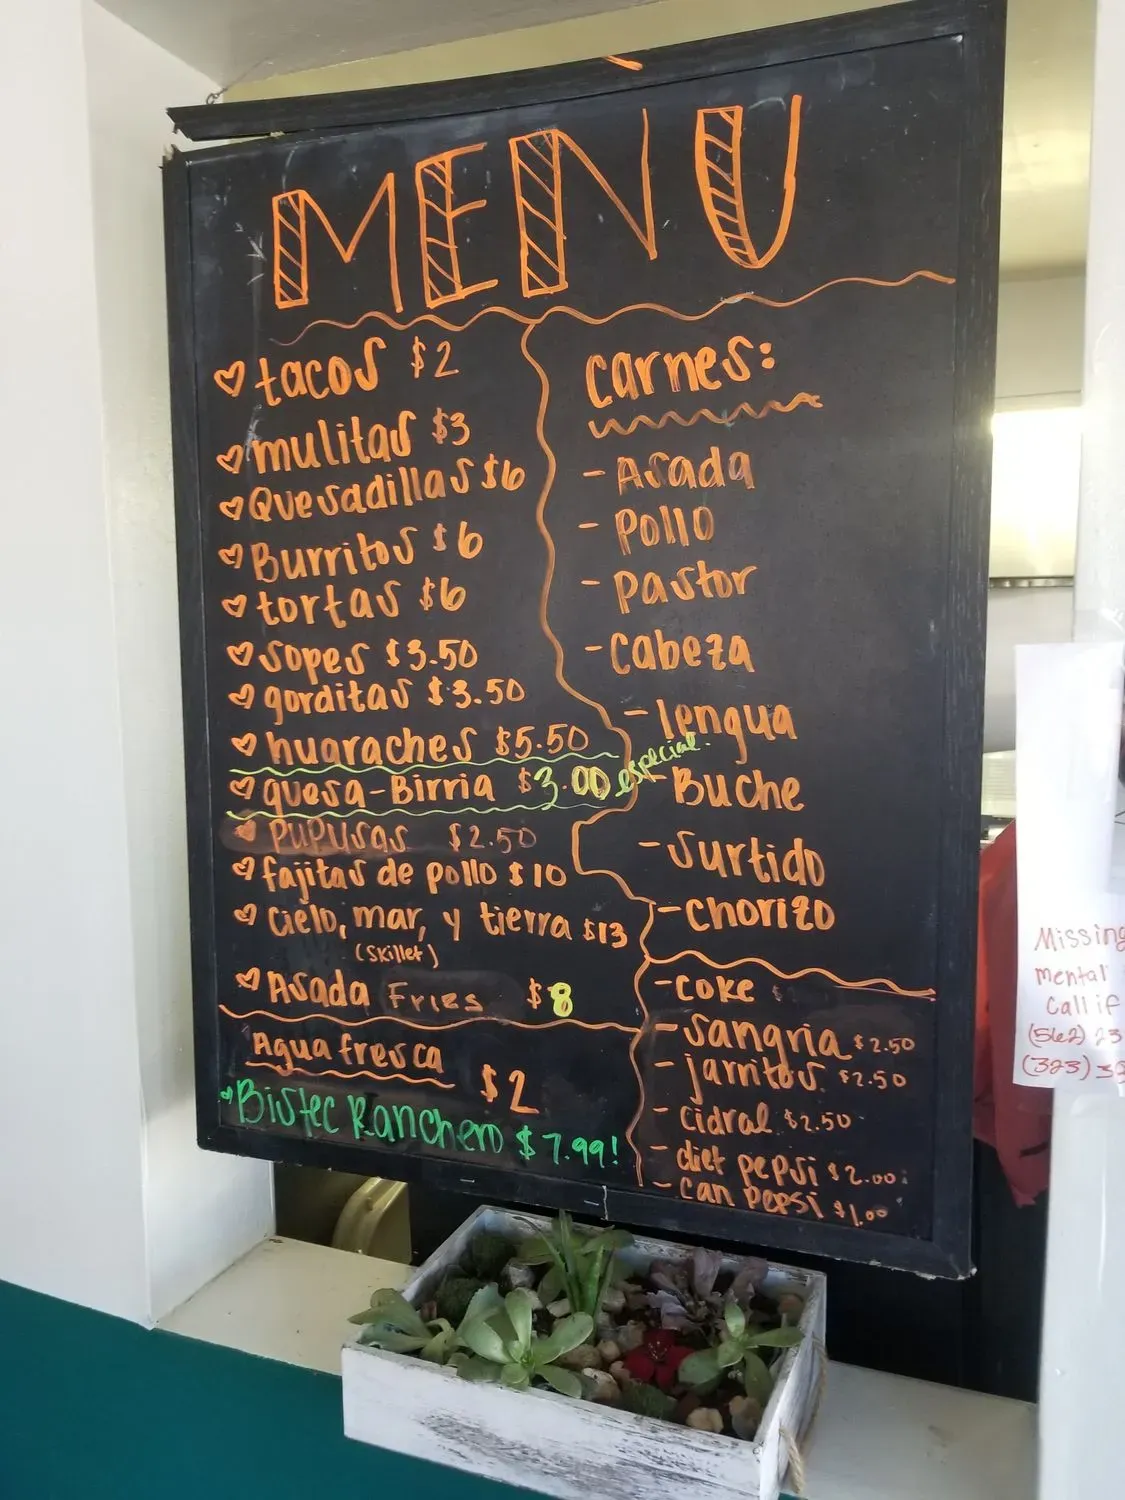 MENU
tacos $2
mulitas $3
Quesadillas $6
Burritos $6
tortas $6
sopes $3.50
gorditas $3.50
huaraches $5.50
quesa-Birria $3.00 especial.
PUPUSAS $2.50
fajitas de pollo $10
Cielo, mar, y tierra $13
(Skillet)
Asada Fries $8
Agua fresca
$2
Bistec Ranchero $7.99!
Carnes:
- Asada
- Pollo
- Pastor
- Cabeza
- lengua
- Buche
- Surtido
- Chorizo
- Coke $
- Sangria $2.50
- jarritos $2.50
- cidral $2.50
- diet pepsi $2.00
- can pepsi $1.00
Missing
mental
Call if
(562) 23
(323) 3